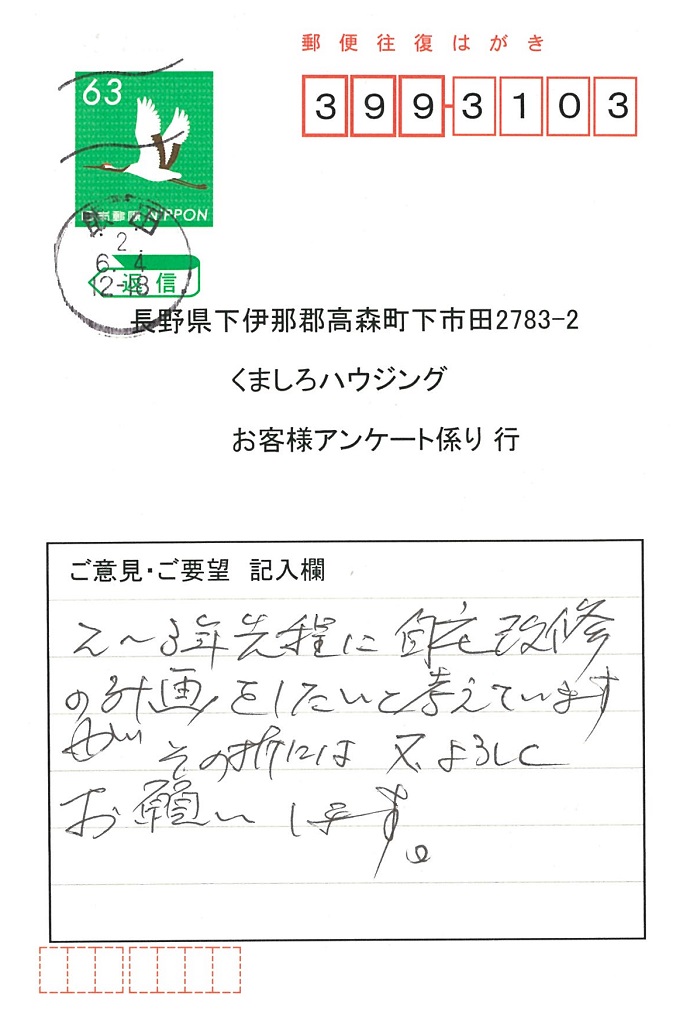 郵便往復はがき
63
399-3103
日本郵便 NIPPON
2.
6. 4
12-18
返信
長野県下伊那郡高森町下市田2783-2
くましろハウジング
お客様アンケート係り 行
ご意見・ご要望 記入欄
2〜3年先程に自宅改修
の計画をしたいと考えています
が その折には 又よろしく
お願いします。